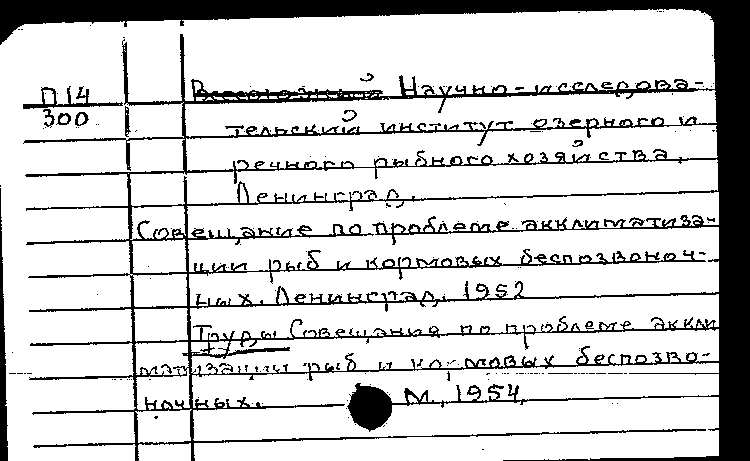 П14
300
Всесоюзный Научно-исследова-
тельский институт озерного и
речного рыбного хозяйства.
Ленинград.
Совещание по проблеме акклиматиза-
ции рыб и кормовых беспозвоноч-
ных. Ленинград. 1952
Труды Совещания по проблеме аккли
матизации рыб и кормовых беспозво-
ночных. М., 1954.